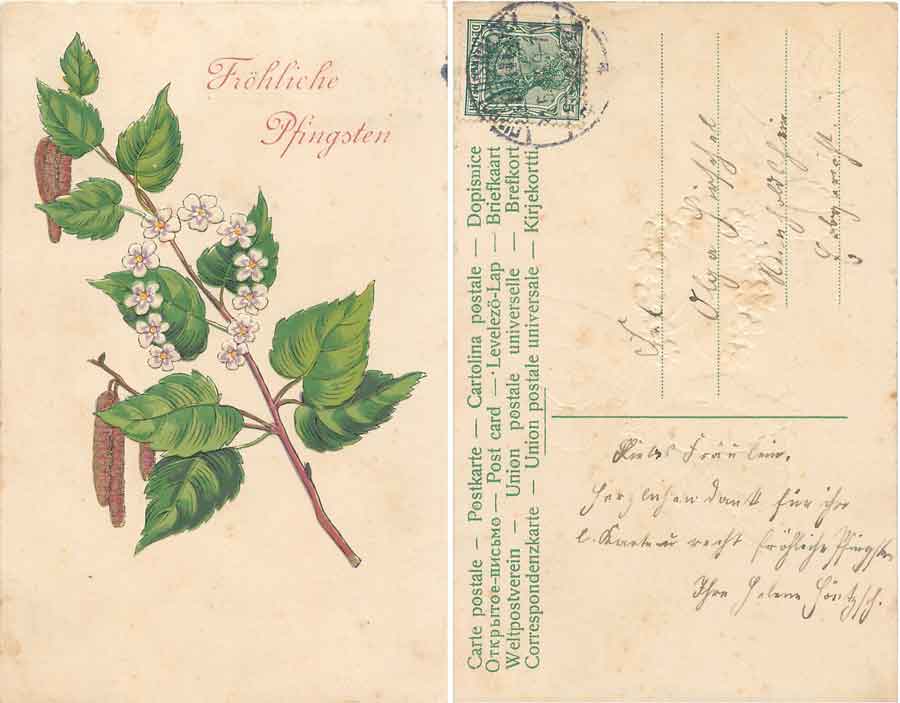 Fröhliche
Pfingsten
Carte postale – Postkarte – Cartolina postale – Dopisnice
Открытое-письмо – Post card – Levelező-Lap – Briefkaart
Weltpostverein – Union postale universelle – Brefkort
Correspondenzkarte – Union postale universale – Kirjekortti
Frl.
Olga
Liebes Fräulein.
Herzlichen Dank für ihre
l. Karte u recht fröhliche Pfingsten
Ihre Helene